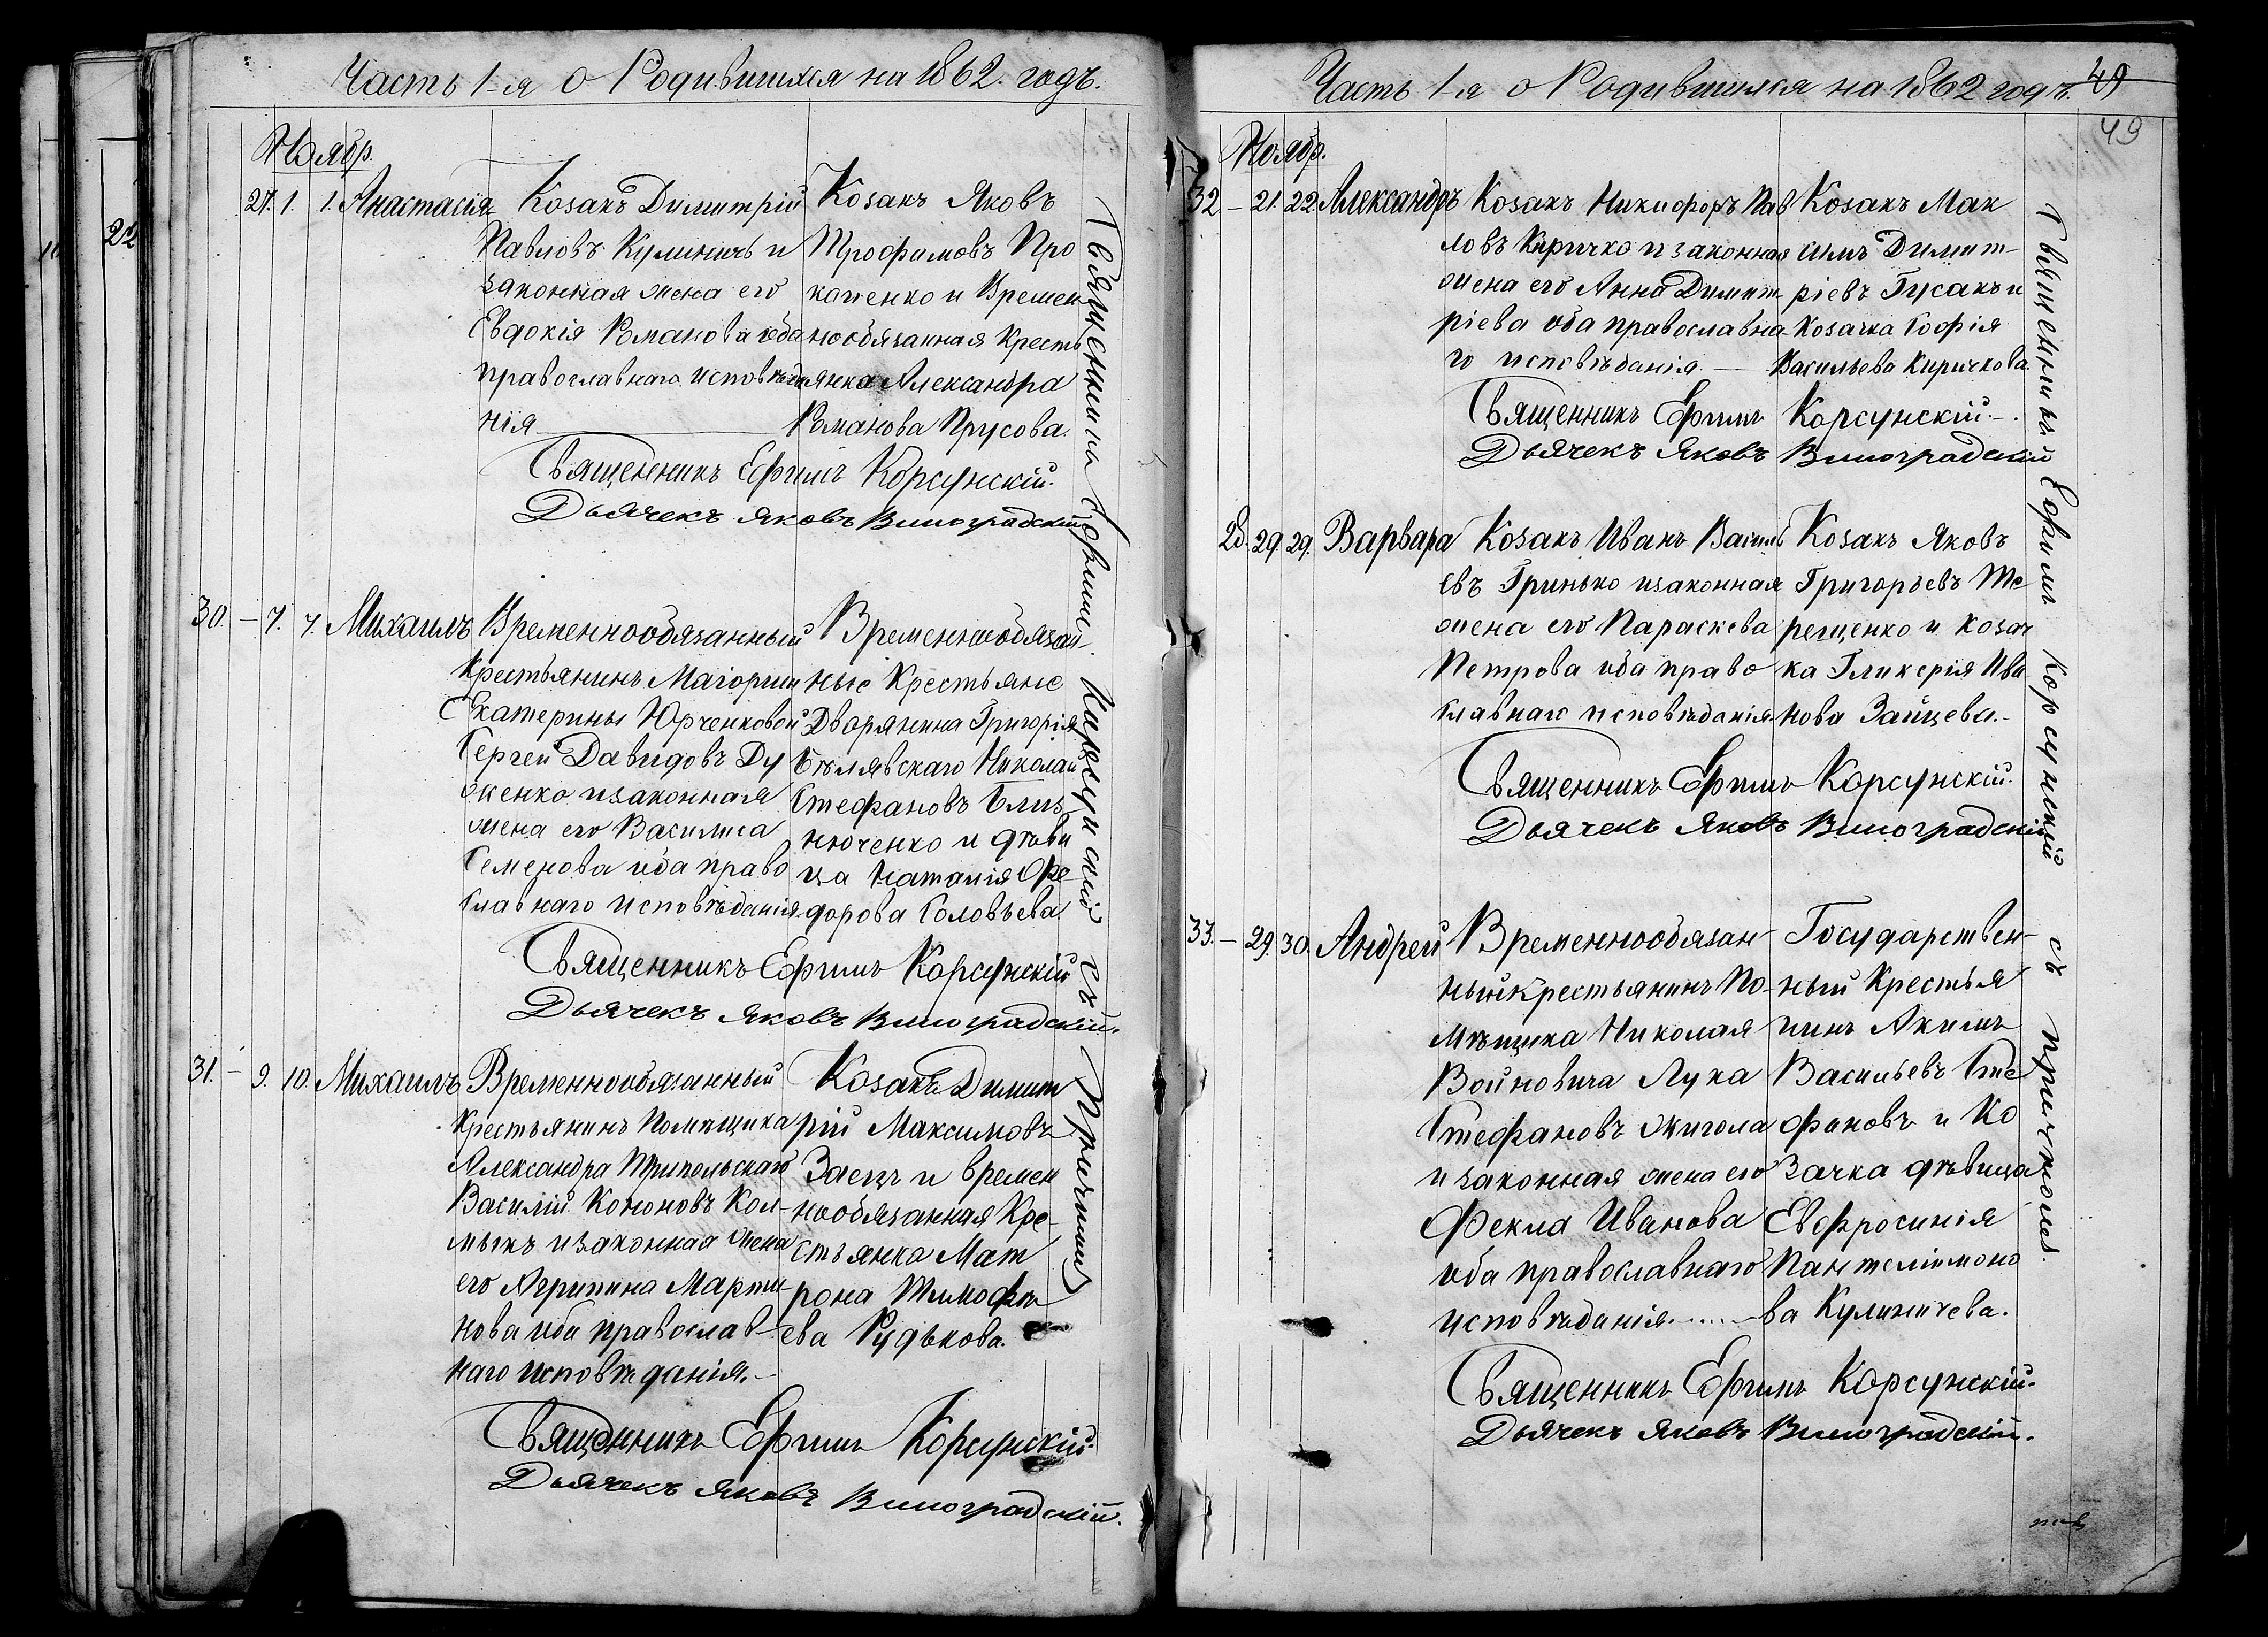 Часть 1-я о Родившихся на 1862. годъ.
Ноябр.
27. 1. 1. Анастасія
Козакъ Димитрій
Павловъ Кулиничъ и
законная жена его
Евдокія Романова оба
православнаго исповѣда
нія
Козакъ Яковъ
Трофимовъ Про
копенко и Времен
нообязанная Кресть
янка Александра
Романова Прусова.
Священникъ Ефимъ Корсунскій.
Дьячекъ Яковъ Виноградскій
30. – 7. 7. Михаилъ
Временнообязанный
Крестьянинъ Маіорши
Екатерины Юрченковой
Сергей Давидовъ Ду
женко и законная
жена его Василиса
Семенова оба право
славнаго исповѣданія.
Временнообязан-
ные Крестьяне
Дворянина Григорія
Бѣлявскаго Николай
Стефановъ Близ
нюченко и дѣви
ца Наталія Фе
дорова Соловьева
Священникъ Ефимъ Корсунскій
Дьячекъ Яковъ Виноградскій.
31. – 9. 10. Михаилъ
Временнообязанный
Крестьянинъ Помѣщика
Александра Трипольскаго
Василій Кононовъ Кол-
мыкъ и законная жена
его Агрипина Марти-
нова оба православ-
наго исповѣданія. –
Козакъ Димит
рій Максимовъ
Заецъ и времен
нообязанная Кре-
стьянка Мат
рона Тимофѣ
ева Рудькова.
Священникъ Ефимъ Корсунскій.
Дьячекъ Яковъ Виноградскій.
Священникъ Ефимъ Корсунскій съ Причтомъ
Часть 1-я о Родившихся на 1862 годъ.
49
49
Ноябр.
32 – 21. 22. Александръ
Козакъ Никифоръ Пав
ловъ Киричко и законная
жена его Анна Димит-
ріева оба православна
го исповѣданія. —
Козакъ Мак
симъ Димит-
ріевъ Гусакъ и
Козачка Софія
Васильева Киричкова.
Священникъ Ефимъ Корсунскій. –.
Дьячекъ Яковъ Виноградскій
28. 29. 29. Варвара
Козакъ Иванъ Василь
евъ Гринько и законная
жена его Параскева
Петрова оба право
славнаго исповѣданія.
Козакъ Яковъ
Григорьевъ Те
рещенко и козач
ка Гликерія Ива
нова Зайцева. –
Священникъ Ефимъ Корсунскій.
Дьячекъ Яковъ Виноградскій
33. – 29. 30. Андрей
Временнообязан-
ный крестьянинъ По-
мѣщика Николая
Войновича Лука
Стефановъ Жигола
и законная жена его
Фекла Иванова
оба православнаго
исповѣданія.
Государствен-
ный Крестья
нинъ Акимъ
Васильевъ Сте
фановъ и Ко
зачка дѣвица
Евфросинія
Пантелімоно
ва Кулиничева.
Священникъ Ефимъ Корсунскій.
Дьячекъ Яковъ Виноградскій.
Священникъ Ефимъ Корсунскій съ причтомъ.